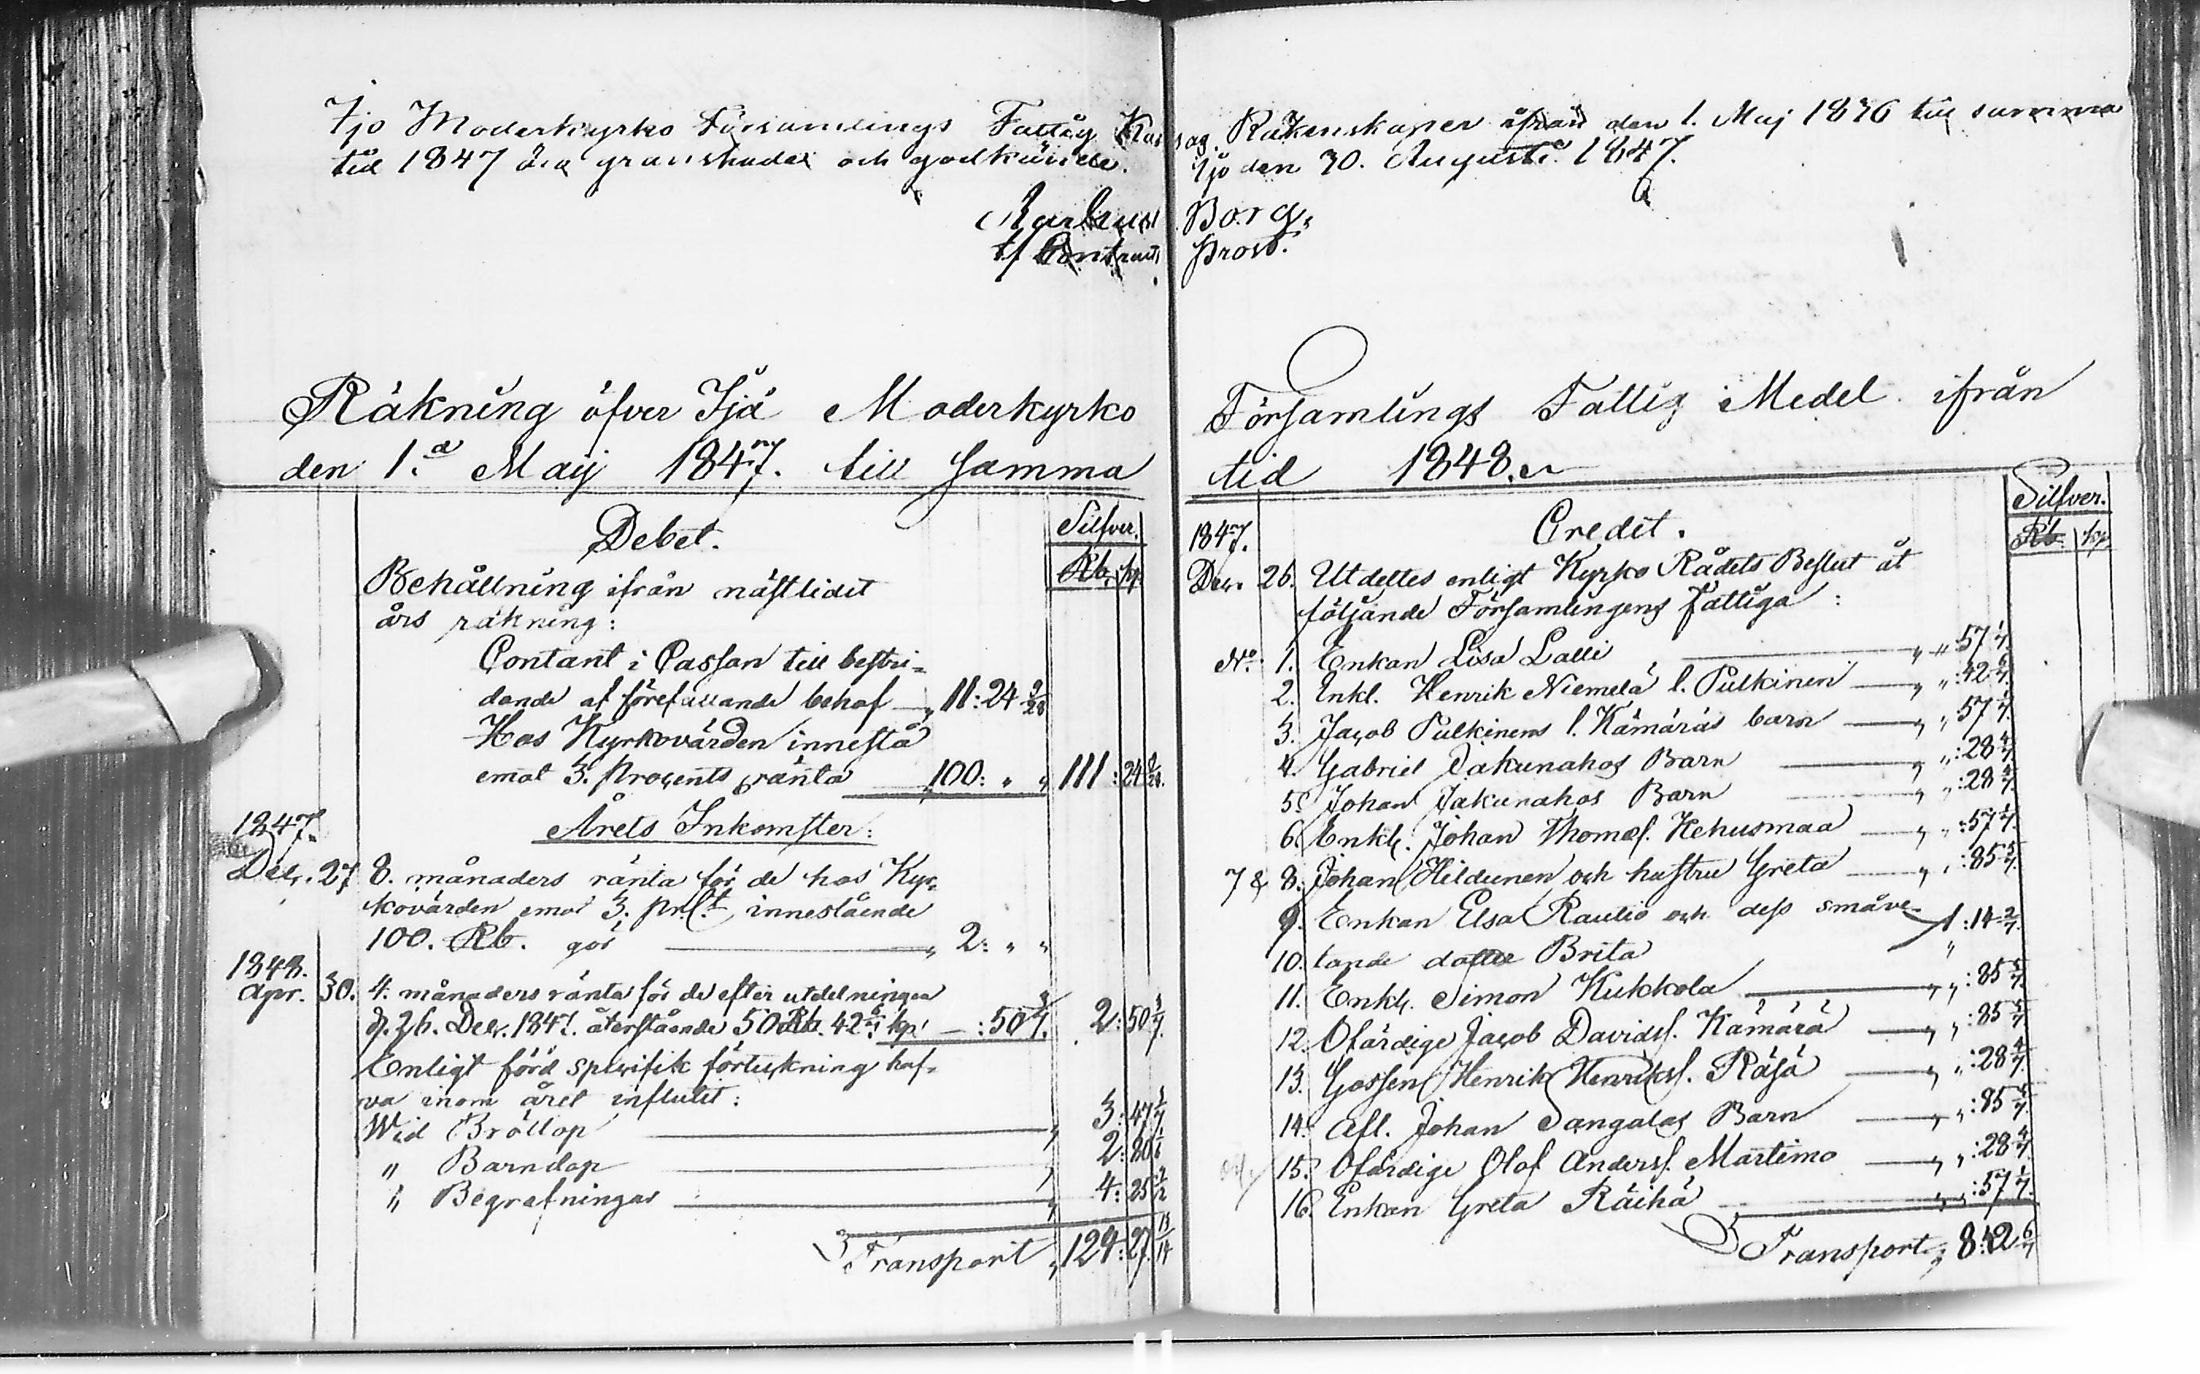 Ijo Moderkyrko Församlings Fattig Kas
tid 1847 äro granskade och godkände.
Borg
t/ Contracts
sas Räkenskaper ifrån den 1. Maj 1846 till samma
Ijo den 30. Augusti 1847.
Borg,
prost.
Räkning öfver Ijå Moderkyrko
den 1.a Maij 1847. till samma
Debet.
Silfver.
Rb. kp.
Behållning ifrån nästlidit
års räkning:
Contant i Cassan till bestri-
dande af förefallande behof — „ 11: 24 9/28
Hos Kyrkovärden innestå
emot 3. procents ränta 100: „ „ 111: 24 9/28.
1847.
Årets Inkomster:
Dec. 27 8. månaders ränta för de hos Kyr-
kovärden emot 3. prCt innestående
100. Rb. gör — „ 2: „ „
1848.
Apr. 30. 4. månaders ränta för de efter utdelningen
d. 26. Dec. 1847. återstående 50 Rb. 42 6/7 kp. — : 50 3/7. 2: 50 3/7.
Enligt förd specifik förteckning haf-
va inom året influtit:
Wid Bröllop — „ 3: 47 1/7
„ Barndop — „ 2: 80 1/6
„ Begrafningar — „ 4: 25 1/2
Transport „ 124: 27. 13/14
Församlings Fattig Medel ifrån
tid 1848.
Silfver.
Rb. kp.
1847.
Credit.
Dec. 26. Utdeltes enligt Kyrko Rådets Beslut åt
följande Församlingens fattiga:
No. 1. Enkan Lisa Lalli — „ „ 57 1/7.
2. Enkl. Henrik Niemelä l. Pulkinen — „ „ :42 6/7.
3. Jacob Pulkinens l. Kämäräs barn — „ „ 57 1/7.
4. Gabriel Jakunahos Barn — „ „ :28 4/7.
5. Johan Jakunahos Barn — „ „ :28 4/7.
6. Enkl. Johan Thomæs. Hehusmaa — „ „ :57 1/7.
7 & 8. Johan Hildunen och hustru Greta — „ „ :85 5/7.
9. Enkan Elsa Rautio och dess småve-
10. tande dotter Brita 1: 14 2/7.
11. Enkl. Simon Kukkola — „ „ :85 5/7.
12. Ofärdige Jacob Davids. Kämärä — „ „ :85 5/7.
13. Gossen Henrik Henriks. Räsä — „ „ :28 4/7.
14. Afl. Johan Sangalas Barn — „ „ :85 5/7.
15. Ofärdige Olof Anders. Martimo — „ „ :28 4/7.
16. Enkan Greta Räihä — „ „ :57 1/7.
Transport, 8: 42 6/7